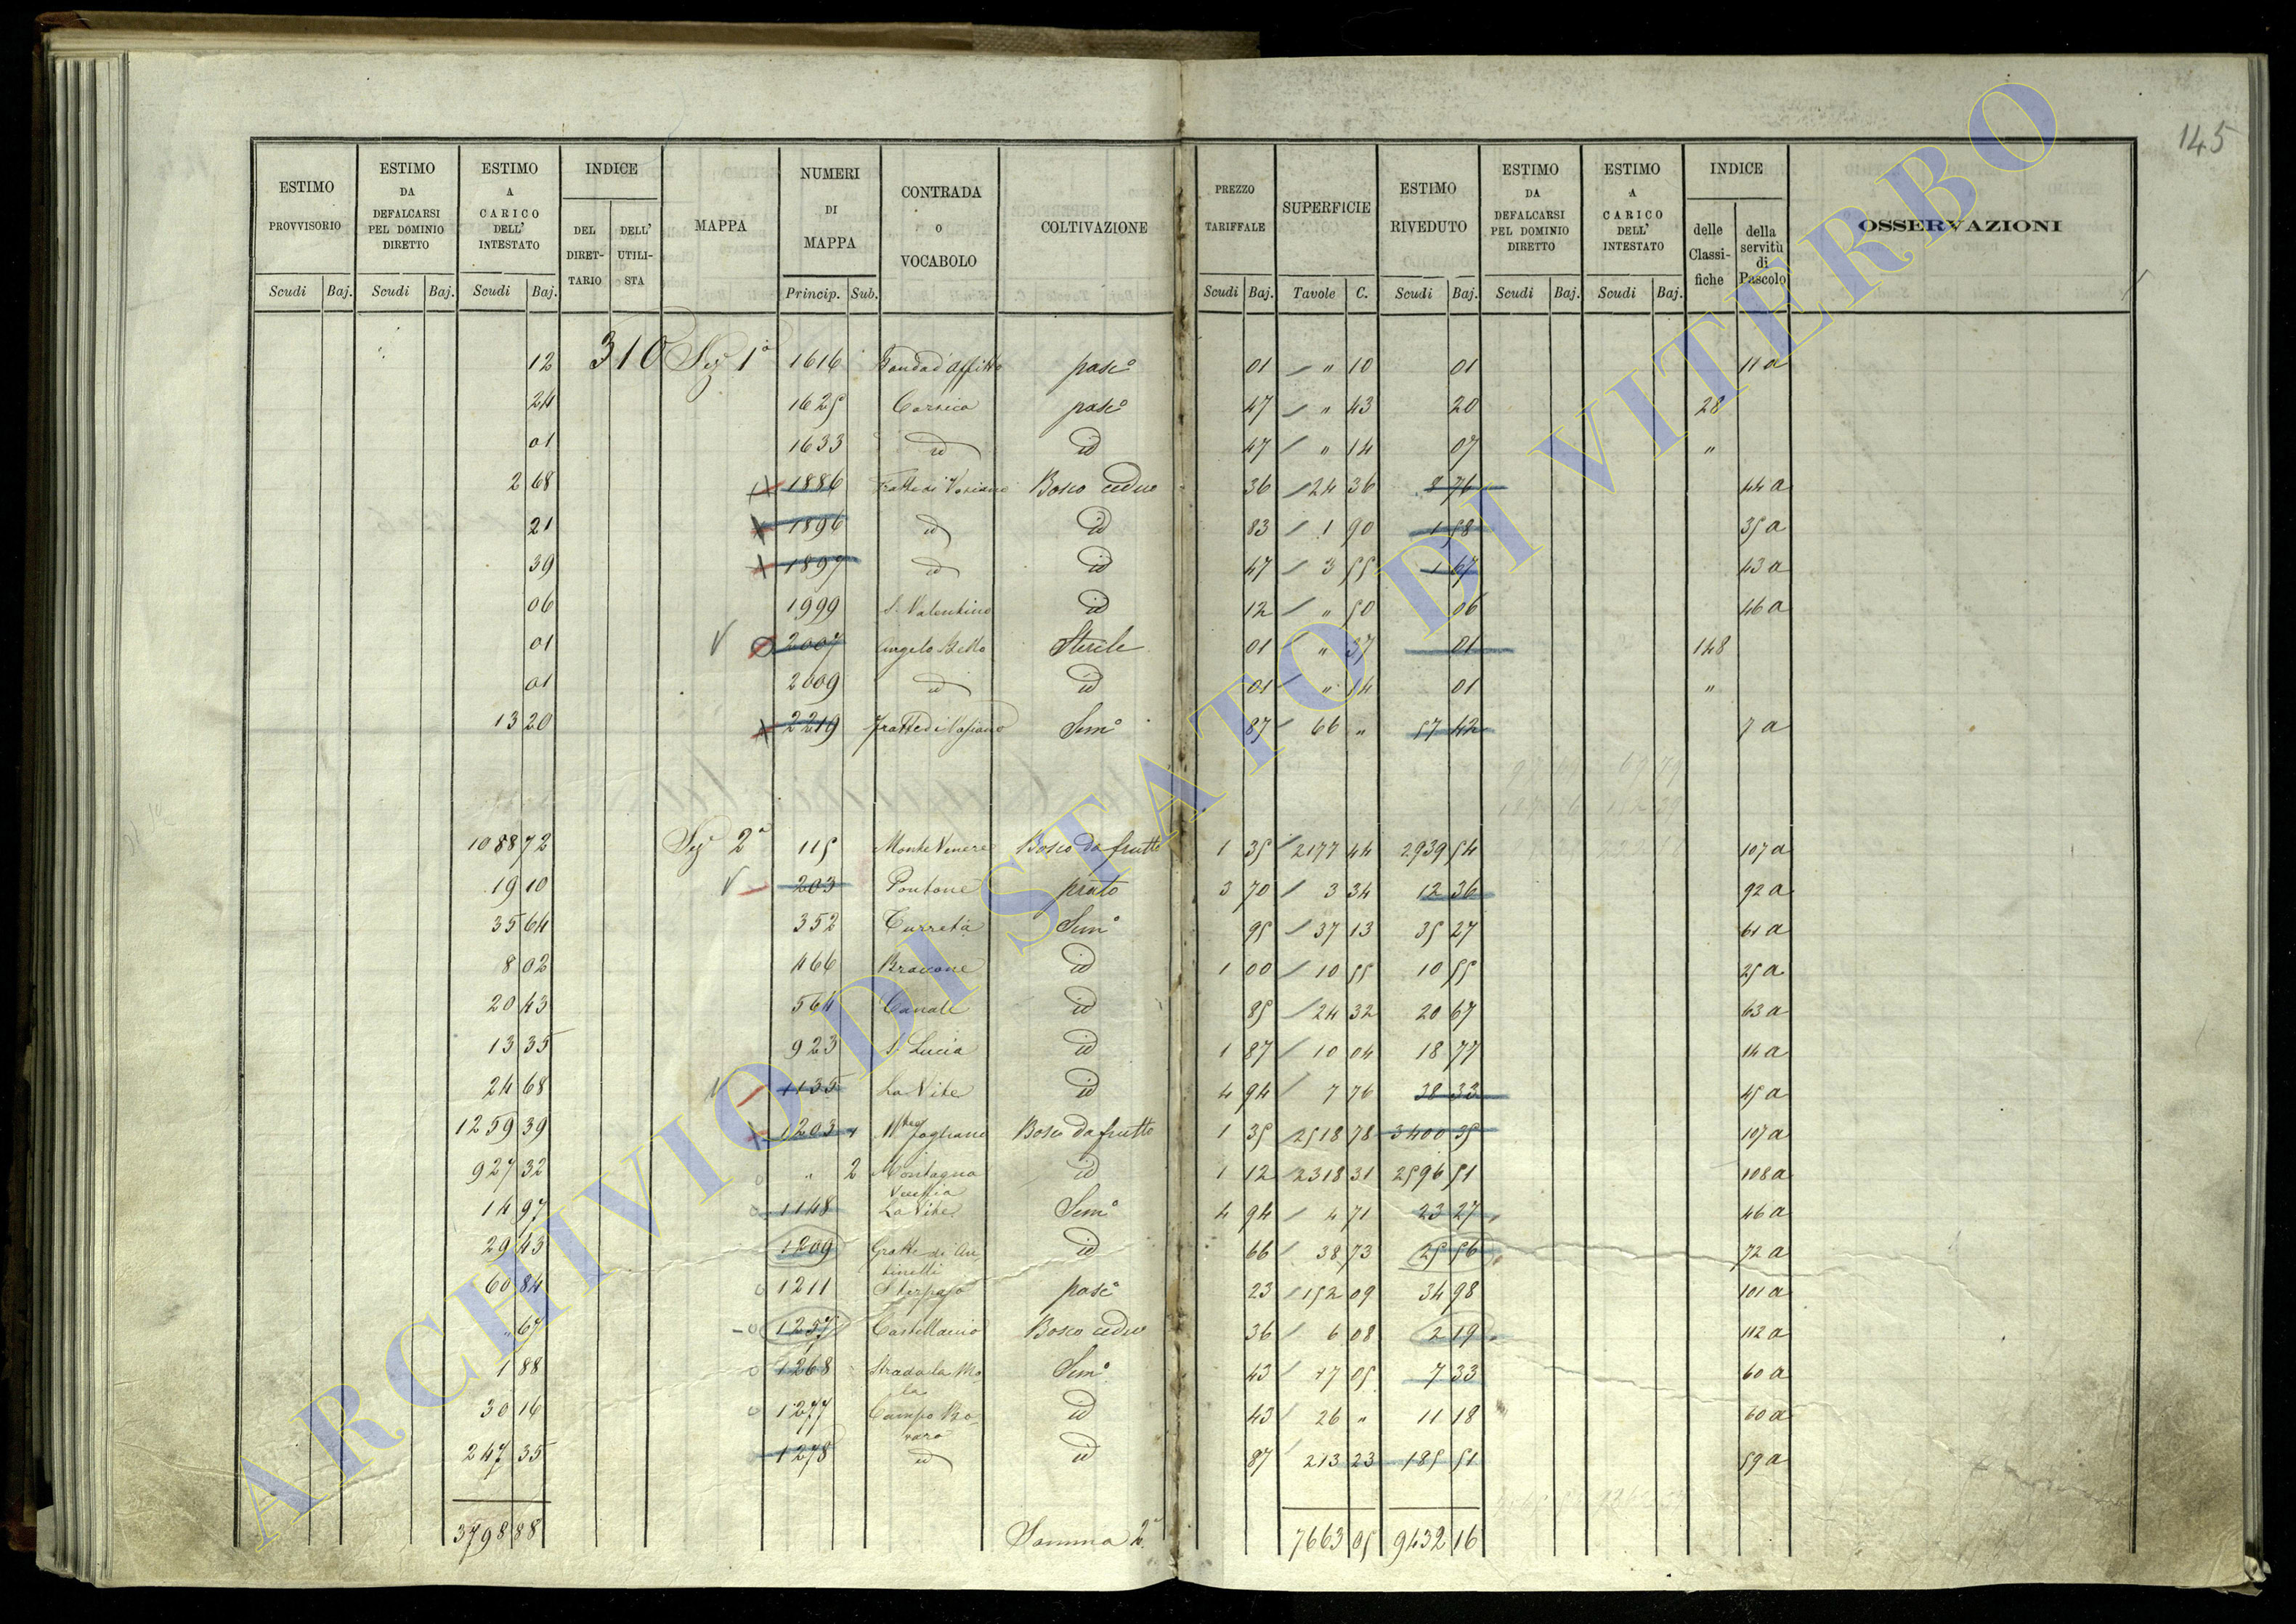 145
ESTIMO PROVVISORIO
ESTIMO DA DEFALCARSI PEL DOMINIO DIRETTO
ESTIMO A CARICO DELL' INTESTATO
INDICE
DEL DIRET-TARIO
DELL' UTILI-STA
MAPPA
NUMERI DI MAPPA
CONTRADA O VOCABOLO
COLTIVAZIONE
PREZZO TARIFFALE
SUPERFICIE
ESTIMO RIVEDUTO
ESTIMO DA DEFALCARSI PEL DOMINIO DIRETTO
ESTIMO A CARICO DELL' INTESTATO
INDICE
delle Classi-fiche
della servitù di Pascolo
OSSERVAZIONI
Scudi Baj. Scudi Baj. Scudi Baj. Princip. Sub. Scudi Baj. Tavole C. Scudi Baj. Scudi Baj. Scudi Baj.
12 310 Sez 1ª 1616 Banda d'Affitto pasco 01 / " 10 01 11 a
24 1625 Corsica pasco 47 / " 43 20 28
01 1633 id id 47 / " 14 07 "
2 68 1886 Fratte di Vosiano Bosco ceduo 36 / 24 36 8 76 44 a
21 1896 id id 83 / 1 90 1 58 35 a
39 1897 id id 47 / 3 55 1 67 43 a
06 1999 S. Valentino id 12 / " 50 06 46 a
01 2007 Angelo Bello Sterile 01 " 37 01 148
01 2009 id id 01 / " 14 01 "
13 20 2219 Fratte di Vosiano Semo 87 / 66 " 57 42 7 a
1088 72 Sez 2ª 115 Monte Venere Bosco da frutto 1 35 / 2177 44 2939 54 107 a
19 10 203 Pontone prato 3 70 / 3 34 12 36 92 a
35 64 352 Turreta Semo 95 / 37 13 35 27 61 a
8 02 466 Bracone id 1 00 / 10 55 10 55 25 a
20 43 564 Canale id 85 / 24 32 20 67 63 a
13 35 923 S. Lucia id 1 87 / 10 04 18 77 14 a
24 68 1135 La Vite id 4 94 / 7 76 38 33 45 a
1259 39 1203 1 Mte Fogliano Bosco da frutto 1 35 2518 78 3400 35 107 a
927 32 " 2 Montagna Vecchia id 1 12 2318 31 2596 51 108 a
14 97 1148 La Vite Semo 4 94 / 4 71 23 27 46 a
29 43 1209 Grotte di Antinelli id 66 / 38 73 25 56 72 a
60 84 1211 Sterpajo pasco 23 / 152 09 34 98 101 a
" 67 1257 Castellaccio Bosco ceduo 36 / 6 08 2 19 112 a
1 88 1268 Strada la Mola Semo 43 / 17 05 7 33 60 a
30 16 1277 Campo Bovaro id 43 / 26 " 11 18 60 a
247 35 1278 id id 87 / 213 23 185 51 59 a
3798 88 Somma 2ª 7663 05 9432 16
ARCHIVIO DI STATO DI VITERBO